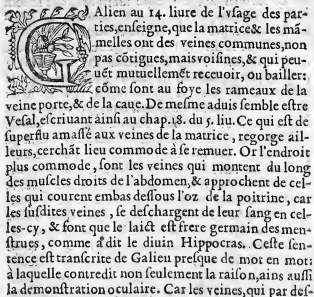 GAlien au 14. liure de l'vſage des par-
ties, enſeigne, que la matrice & les má-
melles ont des veines communes, non
pas cótigues, mais voiſines, & qui peu-
uẽt mutuellemẽt receuoir, ou bailler:
cõme ſont au foye les rameaux de la
veine porte, & de la caue. De meſme aduis ſemble eſtre
Veſal, eſcriuant ainſi au chap. 18. du 5. liu. Ce qui eſt de
ſuperflu amaſſé aux veines de la matrice, regorge ail-
leurs, cerchãt lieu commode à ſe remuer. Or l'endroit
plus commode, ſont les veines qui montent du long
des muſcles droits de l'abdomen, & approchent de cel-
les qui courent embas deſſous l'oz de la poitrine, car
les ſuſdites veines, ſe deſchargent de leur ſang en cel-
les-cy, & font que le laict eſt frere germain des men-
ſtrues, comme a dit le diuin Hippocras. Ceſte ſen-
tence eſt tranſcrite de Galien preſque de mot en mot:
à laquelle contredit non ſeulement la raiſon, ains auſſi
la demonſtration oculaire. Car les veines, qui par deſ-